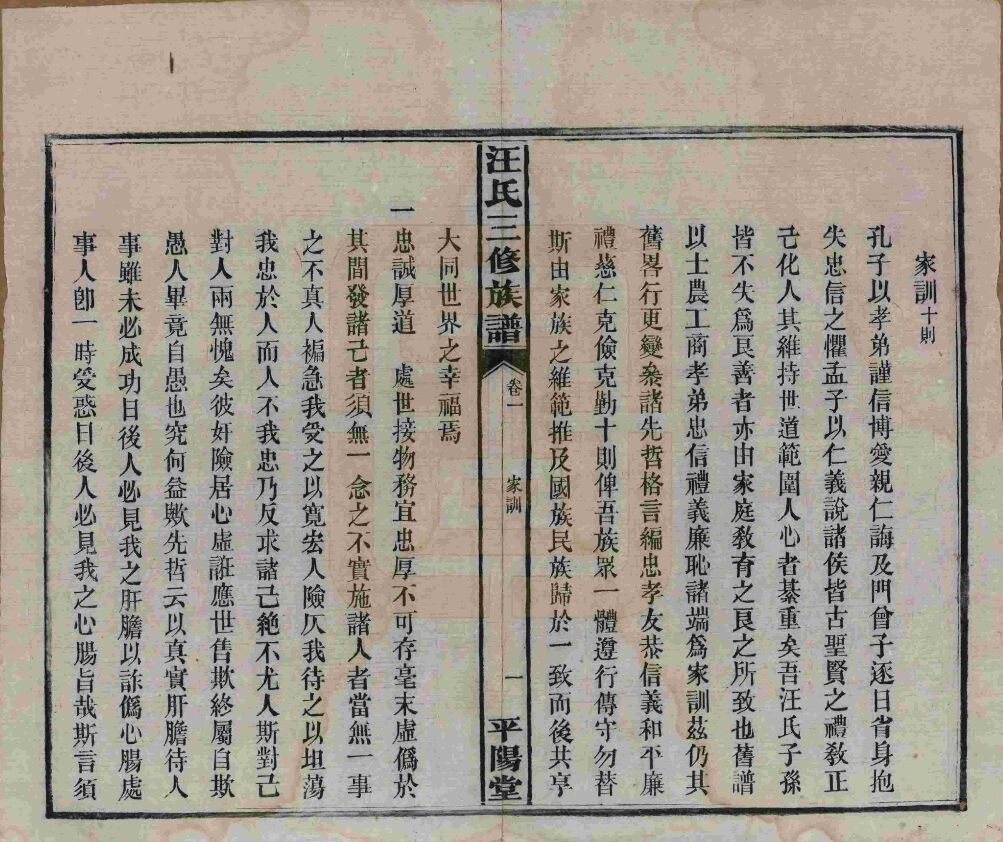 家訓十則
孔子以孝弟謹信博愛親仁誨及門曾子逐日省身抱
失忠信之懼孟子以仁義說諸侯皆古聖賢之禮敎正
己化人其維持世道範圍人心者綦重矣吾汪氏子孫
皆不失爲良善者亦由家庭敎育之良之所致也舊譜
以士農工商孝弟忠信禮義廉恥諸端爲家訓茲仍其
舊畧行更變叅諸先哲格言編忠孝友恭信義和平廉
禮慈仁克儉克勤十則俾吾族眾一體遵行傳守勿替
斯由家族之維範推及國族民族歸於一致而後共享
汪氏三修族譜
卷一
家訓
一
平陽堂
大同世界之幸福焉
一忠誠厚道 處世接物務宜忠厚不可存毫末虛僞於
其間發諸己者須無一念之不實施諸人者當無一事
之不真人褊急我受之以寬宏人險仄我待之以坦蕩
我忠於人而人不我忠乃反求諸己絶不尤人斯對己
對人兩無愧矣彼奸險居心虛誑應世售欺終屬自欺
愚人畢竟自愚也究何益歟先哲云以真實肝膽待人
事雖未必成功日後人必見我之肝膽以詐僞心腸處
事人卽一時受惑日後人必見我之心腸旨哉斯言須